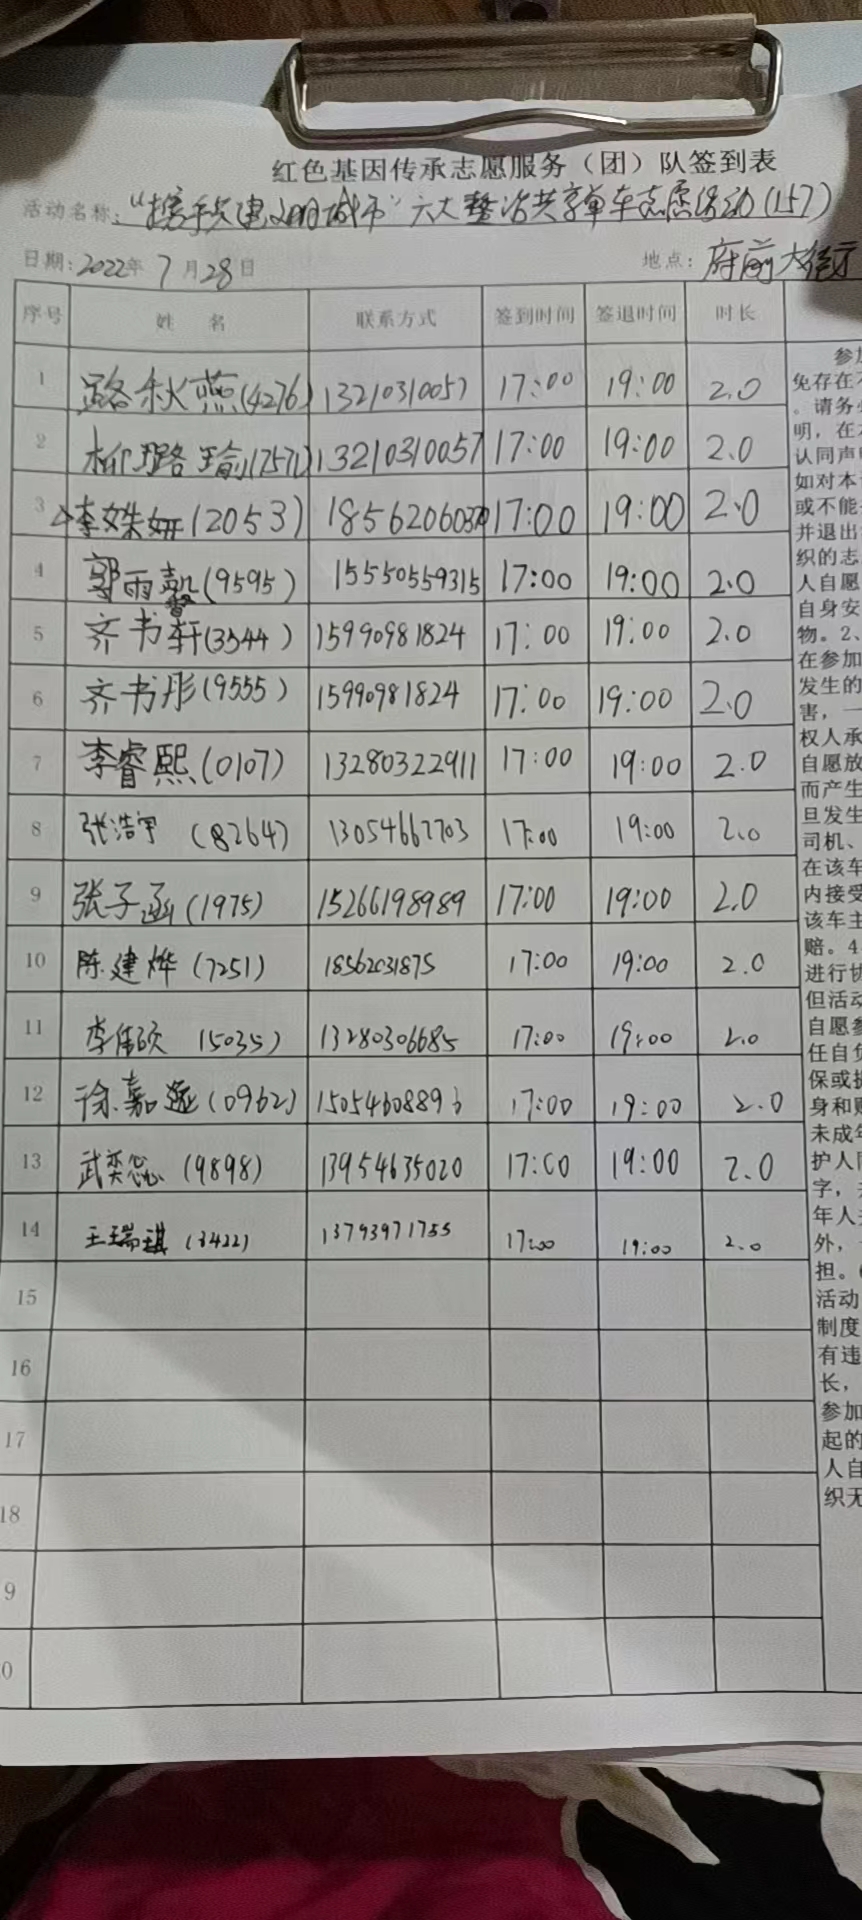 红色基因传承志愿服务（团）队签到表
活动名称："携手共建文明城市"六大整治共享单车志愿活动(157)
日期:2022年7月28日 地点:府前大街
序号 姓名 联系方式 签到时间 签退时间 时长
1 路秋燕(4276) 13210310057 17:00 19:00 2.0
2 柳璐瑜(7571) 13210310057 17:00 19:00 2.0
3 李姝妍(2053) 18562060370 17:00 19:00 2.0
4 郭雨馨(9595) 15550559315 17:00 19:00 2.0
5 齐书轩(3544) 15990981824 17:00 19:00 2.0
6 齐书彤(9555) 15990981824 17:00 19:00 2.0
7 李睿熙(0107) 13280322911 17:00 19:00 2.0
8 张浩宇(8264) 13054667703 17:00 19:00 2.0
9 张子涵(1975) 15266198989 17:00 19:00 2.0
10 陈建烨(7251) 18562031875 17:00 19:00 2.0
11 李伟硕(5035) 13280306685 17:00 19:00 2.0
12 徐嘉遥(0962) 15054608896 17:00 19:00 2.0
13 武奕(9898) 13954635020 17:00 19:00 2.0
14 王瑞琪(3422) 13793971755 17:00 19:00 2.0
15
16
17
18
9
0
参加
免存在不
。请务必
明，在本
认同声明
如对本
或不能
并退出
织的志
人自愿
自身安
物。2、
在参加
发生的
害，一
权人承
自愿放
而产生
旦发生
司机、
在该车
内接受
该车主
赔。4
进行协
但活动
自愿参
任自负
保或
身和
未成年
护人同
字，
年人
外，
担。
活动
制度
有违
长，
参加
起的
人自
织无